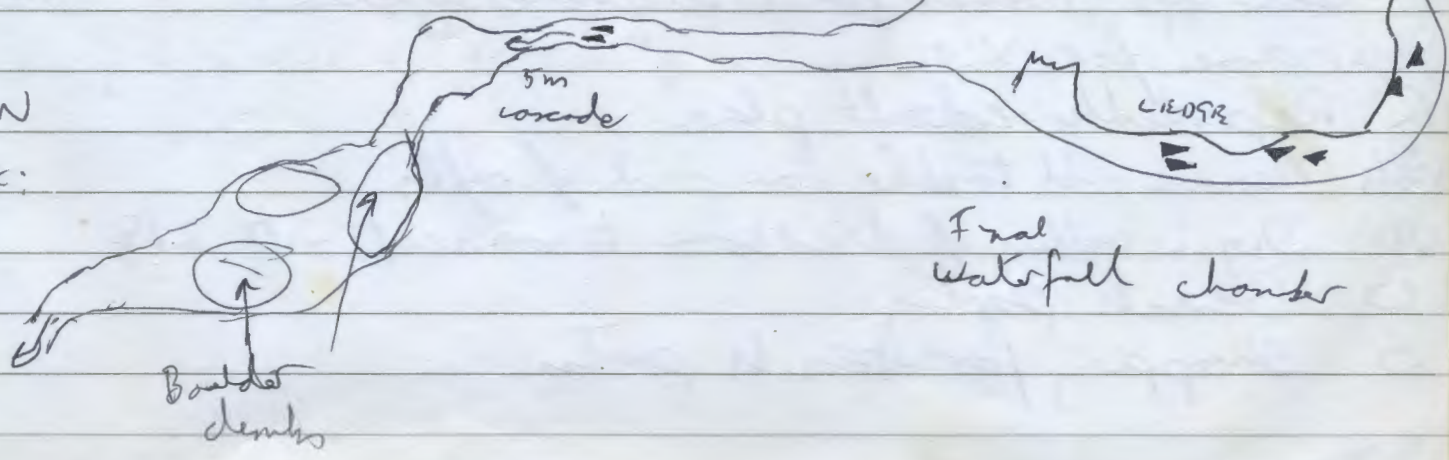 N
5m
cascade
LEDGE
Final
waterfall chamber
Boulder